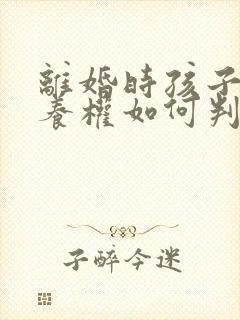 離婚時孩子
養權如何判
子醉今迷